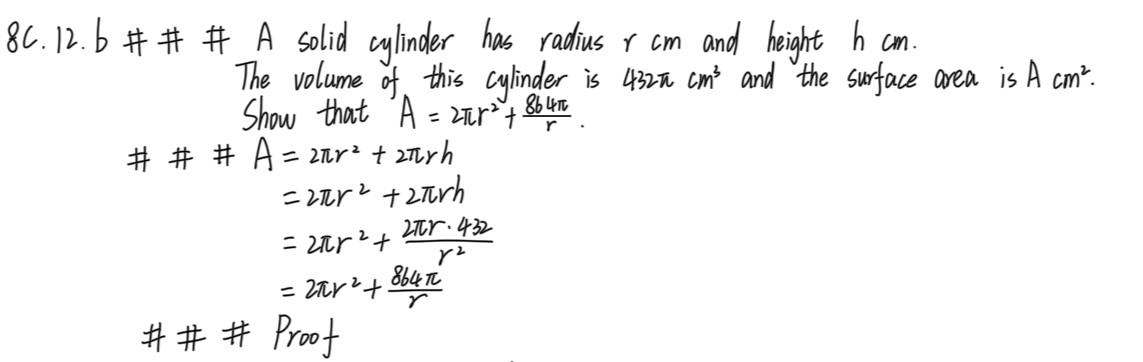 8C.12.b # # # A solid cylinder has radius r cm and height h cm.
The volume of this cylinder is 432π cm³ and the surface area is A cm².
Show that A = 2πr² + \frac{864π}{r}.
# # # A = 2πr² + 2πrh
= 2πr² + 2πrh
= 2πr² + \frac{2πr·432}{r²}
= 2πr² + \frac{864π}{r}
# # # Proof